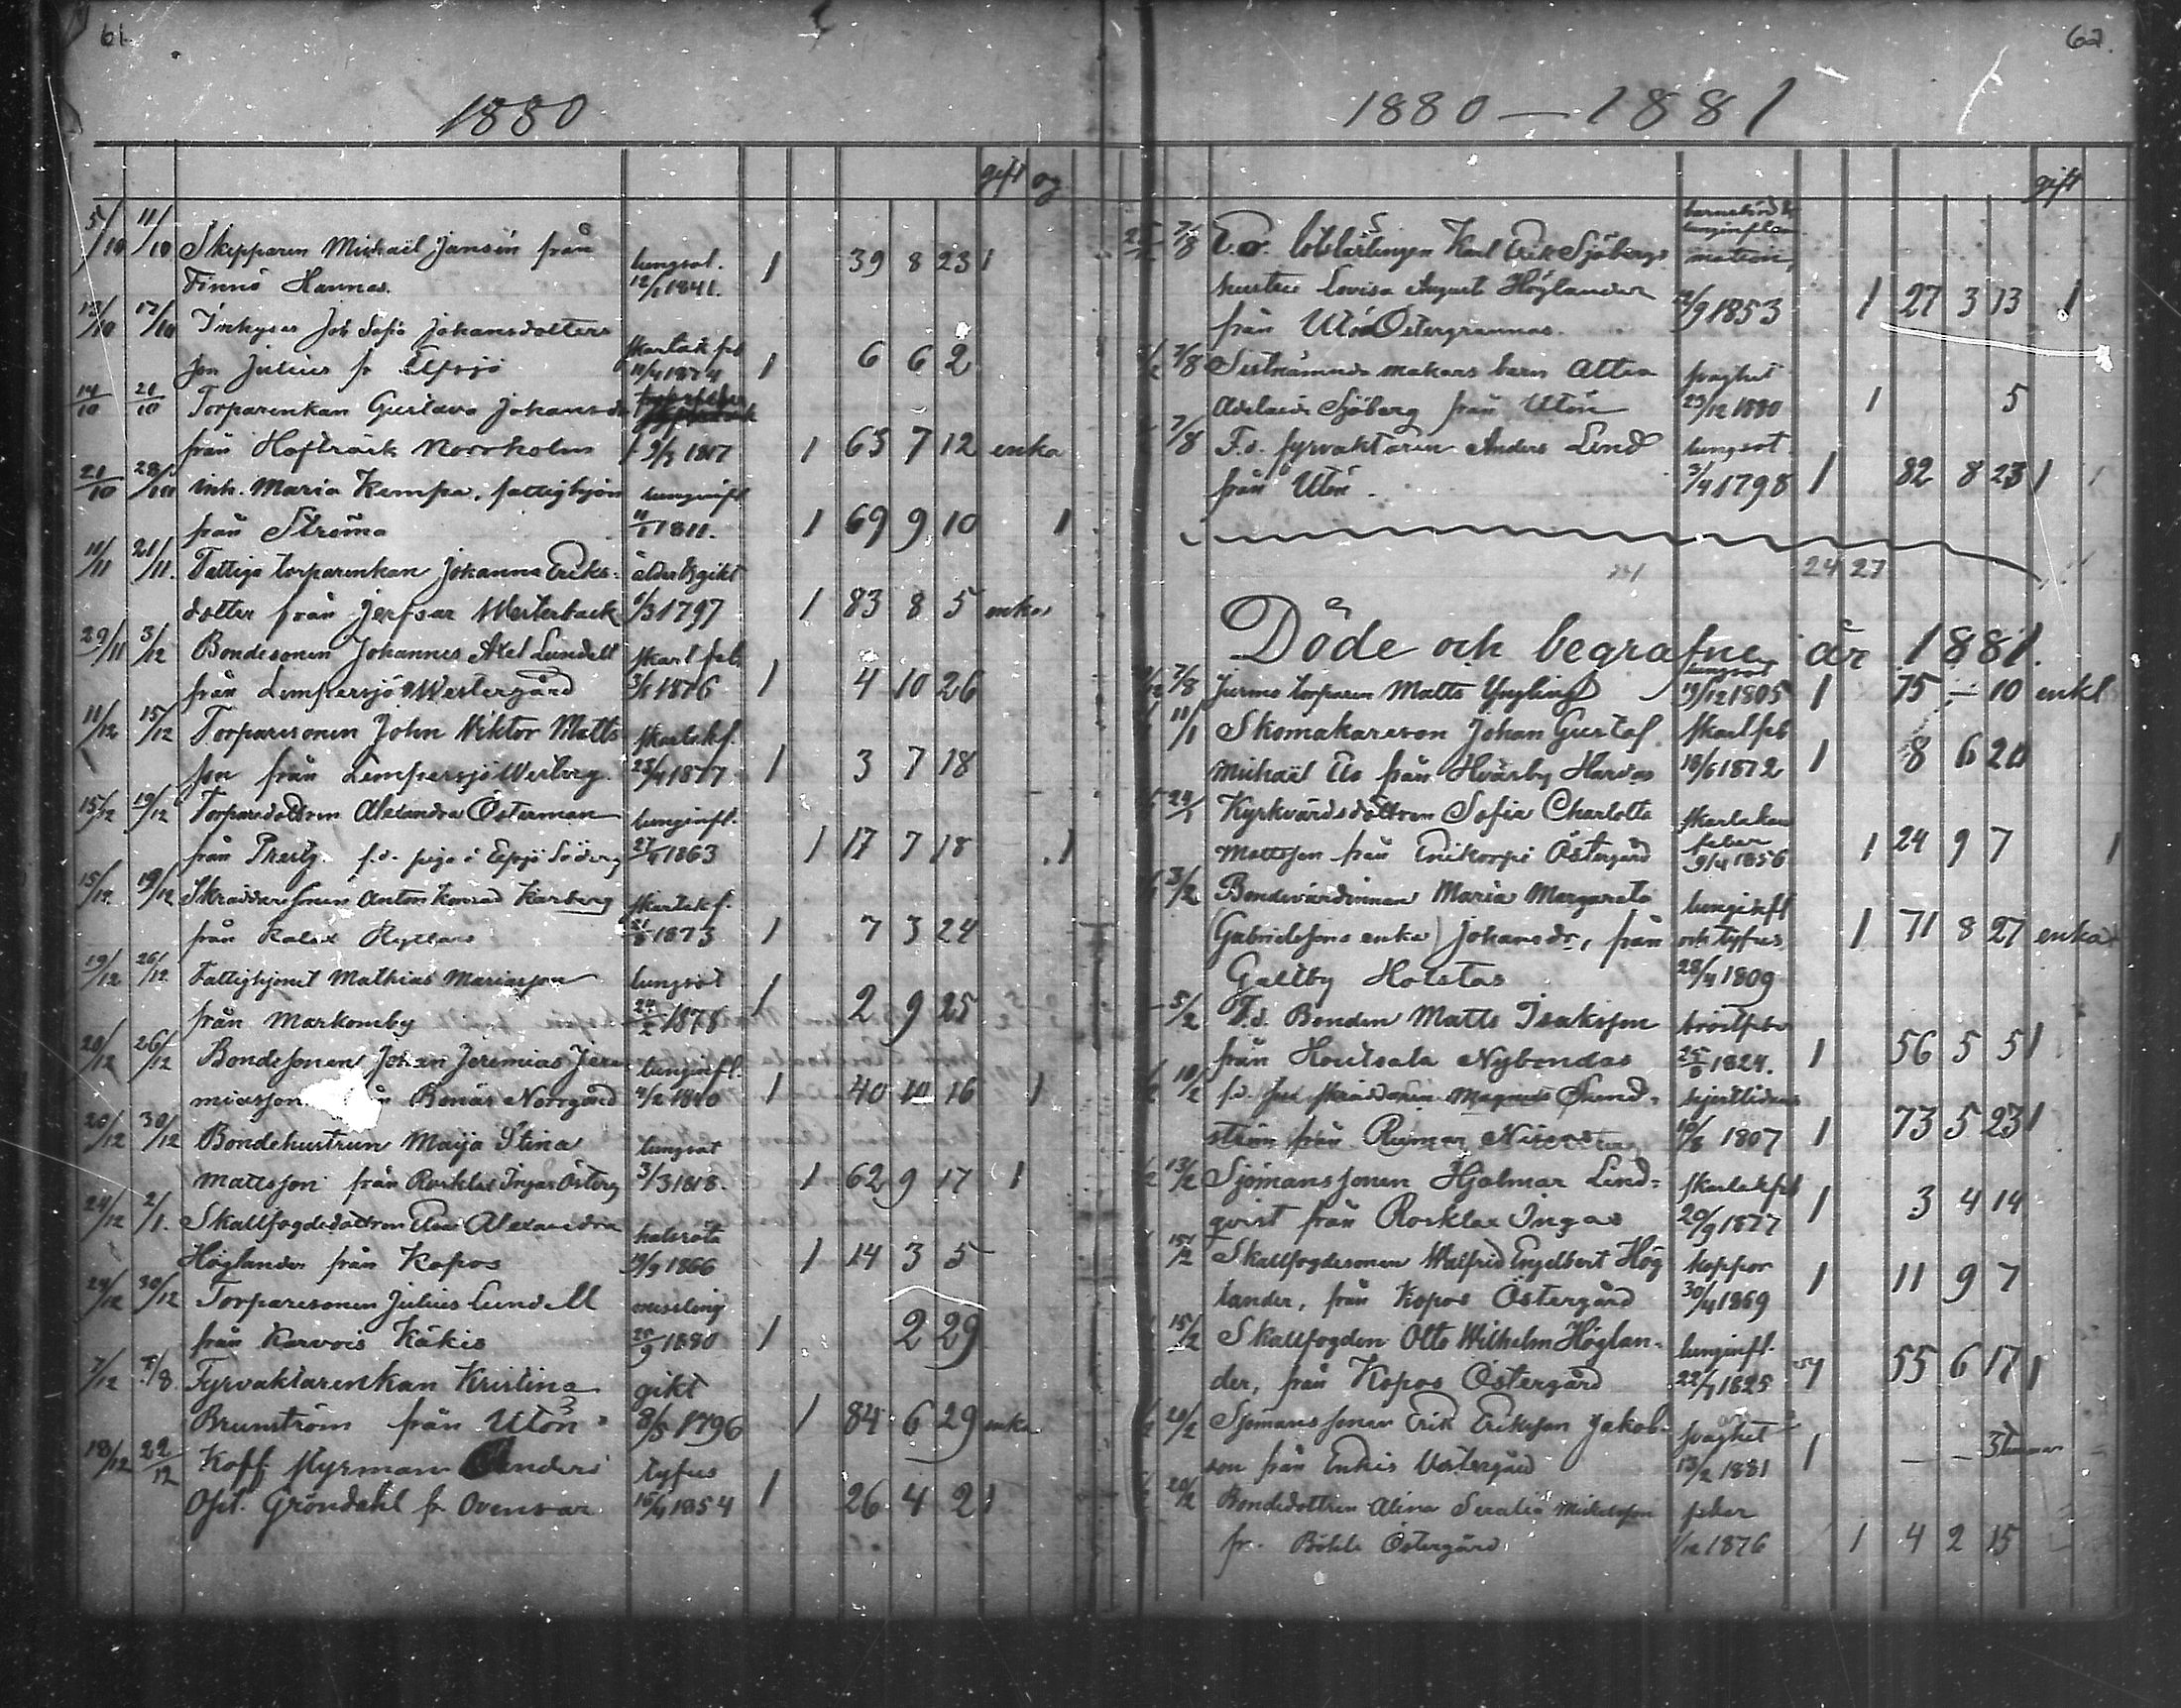 61
1880
gift og
5/10 11/10 Skepparen Michaël Jansén från lungsot.
Finnö Hannas. 12/1 1841. 1 39 8 23 1
13/10 17/10 Inhyses Joh Sofia Johansdotters
son Julius fr Elfsjö skarlak feb 11/4 1874 1 6 6 2
14/10 21/10 Torparenkan Gustava Johansdr
från Hafträsk Norrholm 1817 1 63 7 12 enka
21/10 28/10 inh. Maria Kempa, fattighjon lunginfl
från Ströma 11/1 1811. 1 69 9 10 1
11/11 21/11. Fattiga torparenkan Johanna Eriks- ålder & gikt
dotter från Jerfsar Westerback 6/3 1797 1 83 8 5 enka
29/11 3/12 Bondesonen Johannes Axel Lundell skarl feb.
från Lempersjö Westergård 3/1 1876 1 4 10 26
11/12 15/12 Torparesonen John Wiktor Matts skarlakf.
son från Lempersjö Westerg. 23/4 1877 1 3 7 18
15/12 19/12 Torparedottren Alexandra Österman lunginfl.
från Prestg. f.d. piga i Elfsjö Söderg 27/4 1863 1 17 7 18 1
15/12 19/12 Skräddaresonen Anton Konrad Karberg skarlakf.
från Kalax 21/8 1873 1 7 3 24
19/12 26/12 Fattighjonet Mathias Mariasson lungsot
från Markomby 24/2 1878 1 2 9 25
20/12 26/12 Bondesonen Johan Jeremias Jere- lunginfl.
miasson från Benäs Norrgård 4/2 1840 1 40 10 16 1
20/12 30/12 Bondehustrun Maija Stina lungsot
Mattsson från Roslax Ingas Österg 3/3 1818. 1 62 9 17 1
24/12 2/1. Skallfogdedottren Elva Alexandra halsröta
Höglander från Kopos 19/9 1866 1 14 3 5
29/12 30/12 Torparesonen Julius Lundell messling
från Karvois Käkis 20/9 1880 1 2 29
7/12 7/8 Fyrvaktarenkan Kristina gikt
Brunström från Utön 8/5 1796 1 84 6 29 enka
18/12 22/12 Koff. styrman Anders tyfus
Ose. Gröndahl fr Ovensar 16/4 1854 1 26 4 2 1
62.
1880 — 1881
gift
barnsbörd &
lunginflam
7/8 E.o. lotslärlingen Karl Erik Sjöbergs mation,
hustru Lovisa August Höglander
från Utön Östergrannas. 18/9 1853 1 27 3 13 1
7/8 Sistnämnda makars barn Attia svaghet
Adelaide Sjöberg från Utön 29/12 1880 1 5
7/8 F.d. fyrvaktaren Anders Lind lungsot
från Utön. 3/4 1798 1 82 8 23 1
24 27
Döde och begrafne år 1881.
7/8 Jurmo torparen Matts Yngling lungsot 19/12 1805 1 75 — 10 enkl
11/1 Skomakareson Johan Gustaf skarlfeb
Michaël Ek från Hvarby Hardas 18/6 1872 1 8 6 20
24/1 Kyrkvärdsdottren Sofia Charlotta skarlakan
Mattsson från Enikorpi Östergård feber 9/4 1856 1 24 9 7 1
3/2 Bondevärdinnan Maria Margareta lunginfl
(Gabrielssons enka) Johansdr, från och tyfus 1 71 8 27 enka
Galtby Holstas 28/4 1809
5/2 F.d. Bonden Matts Isaksson bröstfeber
från Houtsala Nybondas 25/8 1824. 1 56 5 5 1
10/2 f.d. skräddaren Magnus Sund- hjertlidande
ström från Rumar 16/8 1807 1 73 5 23 1
13/2 Sjömanssonen Hjalmar Lind- skarlakfeb
qvist från Rosklax Ingas 20/9 1877 1 3 4 14
15/2 Skallfogdesonen Walfrid Engelbert Hög koppor
lander, från Kopos Östergård 30/4 1869 1 11 9 7
15/2 Skallfogden Otto Wilhelm Höglan- lunginfl.
der, från Kopos Östergård 22/7 1825 1 55 6 17 1
20/2 Sjömanssonen Erik Eriksson Jakob- svaghet
son från Enkis Westergård 13/2 1881 1 — — 3 timmar
20/2 Bondedottren Alina Seralia Mickelsson feber
fr. Böhle Östergård 1/12 1876 1 4 2 15